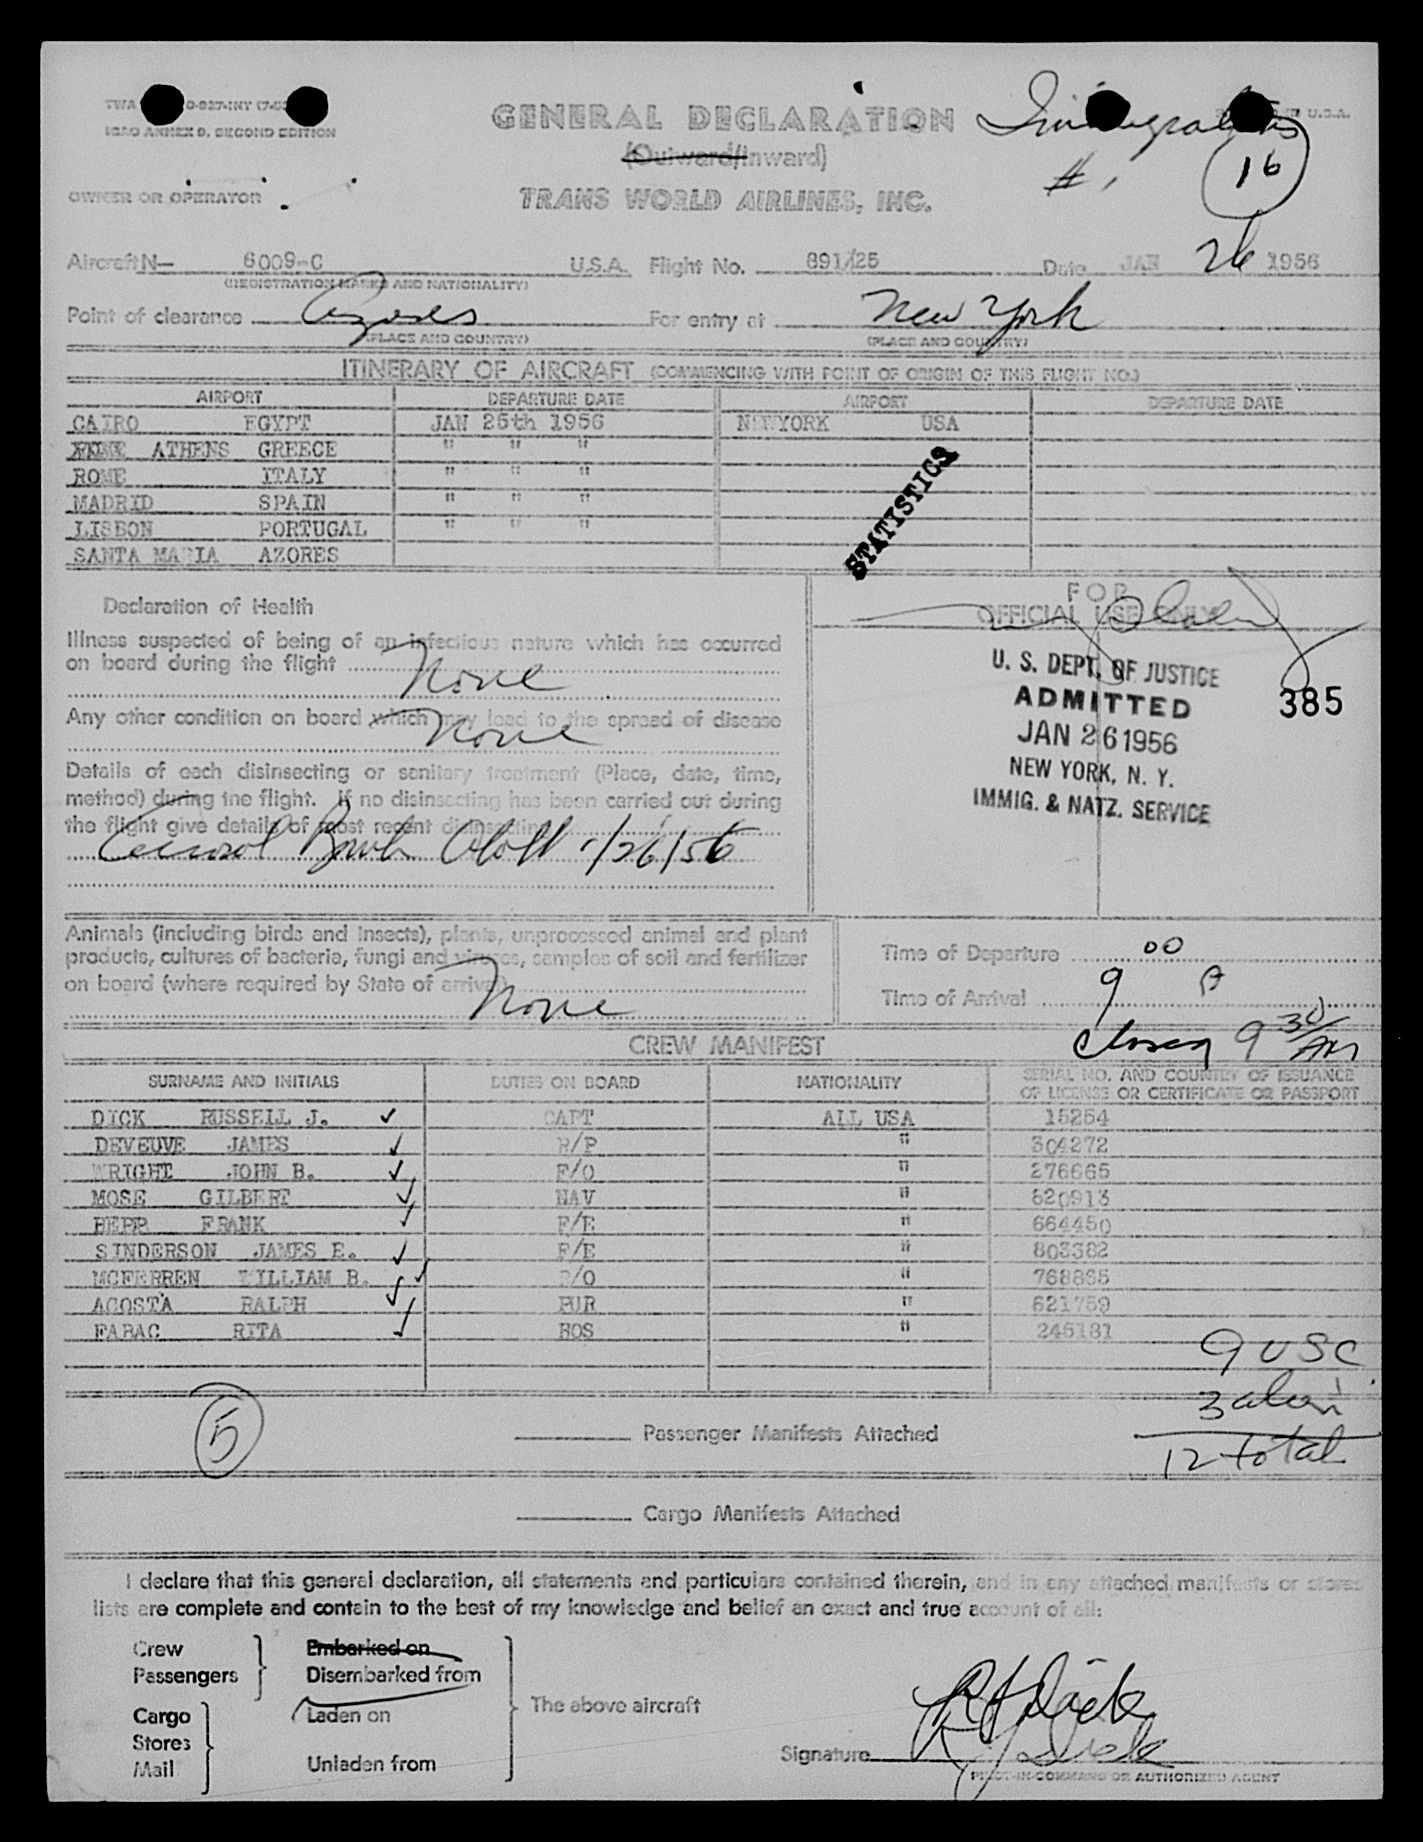 TWA
ICAO ANNEX 9, SECOND EDITION
GENERAL DECLARATION
(Outward/Inward)
TRANS WORLD AIRLINES, INC.
OWNER OR OPERATOR
U.S.A.
# 1
16
Aircraft N— 6009-C U.S.A. Flight No. 891/25 Date JAN 26 1956
(REGISTRATION MARKS AND NATIONALITY)
Point of clearance Azores For entry at New York
(PLACE AND COUNTRY) (PLACE AND COUNTRY)
ITINERARY OF AIRCRAFT (COMMENCING WITH POINT OF ORIGIN OF THIS FLIGHT NO.)
AIRPORT DEPARTURE DATE AIRPORT DEPARTURE DATE
CAIRO EGYPT JAN 25th 1956 NEWYORK USA
ATHENS GREECE " " "
ROME ITALY " " "
MADRID SPAIN " " "
LISBON PORTUGAL " " "
SANTA MARIA AZORES
STATISTICS
Declaration of Health
Illness suspected of being of an infectious nature which has occurred
on board during the flight None
Any other condition on board which may lead to the spread of disease
None
Details of each disinsecting or sanitary treatment (Place, date, time,
method) during the flight. If no disinsecting has been carried out during
the flight give details of most recent disinsecting
Aerosol Bomb 1/26/56
FOR
OFFICIAL USE ONLY
U. S. DEPT. OF JUSTICE
ADMITTED
JAN 26 1956
NEW YORK, N. Y.
IMMIG. & NATZ. SERVICE
385
Animals (including birds and insects), plants, unprocessed animal and plant
products, cultures of bacteria, fungi and viruses, samples of soil and fertilizer
on board (where required by State of arrival)
None
Time of Departure
Time of Arrival 9 00 A
9 30 AM
CREW MANIFEST
SURNAME AND INITIALS DUTIES ON BOARD NATIONALITY SERIAL NO. AND COUNTRY OF ISSUANCE
OF LICENSE OR CERTIFICATE OR PASSPORT
DICK RUSSELL J. CAPT ALL USA 15254
DEVEUVE JAMES R/P " 304272
WRIGHT JOHN B. F/O " 276665
MOSE GILBERT NAV " 620913
FRANK F/E " 664450
SINDERSON JAMES E. F/E " 803382
MCFERREN WILLIAM B. "
ACOSTA RALPH PUR " 621759
FABAC RITA HOS " 245181
9 USC
3 alien
12 total
5
Passenger Manifests Attached
Cargo Manifests Attached
I declare that this general declaration, all statements and particulars contained therein, and in any attached manifests or stores
lists are complete and contain to the best of my knowledge and belief an exact and true account of all:
Crew
Passengers
Embarked on
Disembarked from
Cargo
Stores
Mail
Laden on
Unladen from
The above aircraft
R J Dick
R J Dick
Signature
PILOT-IN-COMMAND OR AUTHORIZED AGENT